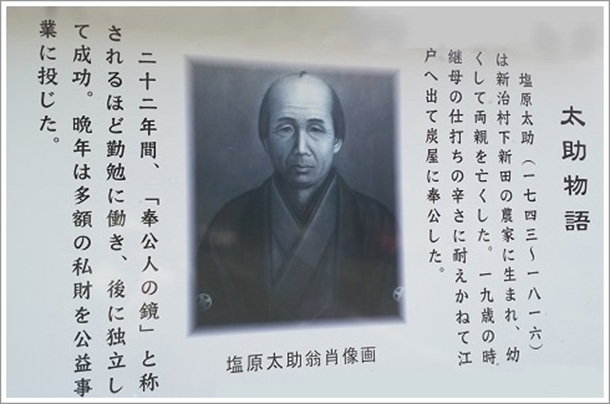 太助物語
塩原太助（一七四三～一八一六）
は新治村下新田の農家に生まれ、幼
くして両親を亡くした。一九歳の時
継母の仕打ちの辛さに耐えかねて江
戸へ出て炭屋に奉公した。
塩原太助翁肖像画
二十二年間、「奉公人の鏡」と称
されるほど勤勉に働き、後に独立し
て成功。晩年は多額の私財を公益事
業に投じた。